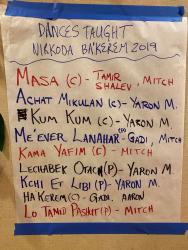 DANCES TAUGHT
NIRKODA BA'KEREM 2019
MASA (C) - TAMIR
SHALEV, MITCH
ACHAT MIKULAN (C) - YARON M.
KUM KUM (C) - YARON M.
ME'EVER LANAHAR (P) - GADI, MITCH
KAMA YAFIM (C) - MITCH
LECHABEK OTACH (P) - YARON M.
KCHI ET LIBI (P) - YARON M.
HAKEREM (C) - GADI, AARON
LO TAMID PASHUT (P) - MITCH